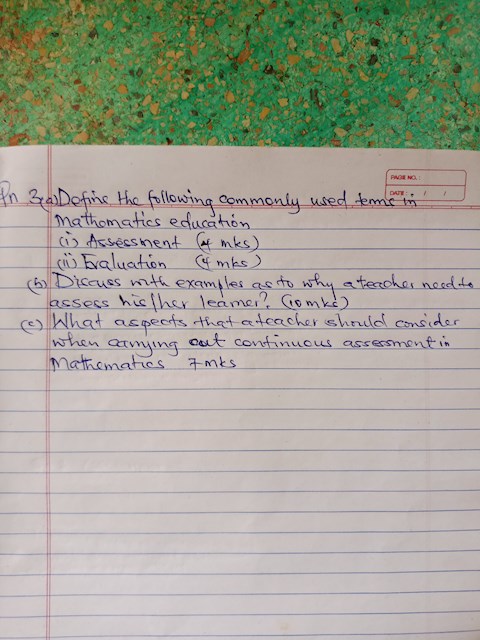 PAGE NO.:
DATE: / /
Qn 3(a) Define the following commonly used terms in
Mathematics education
(i) Assessment (4 mks)
(ii) Evaluation (4 mks)
(b) Discuss with examples as to why a teacher need to
assess his/her learner? (10 mks)
(c) What aspects that a teacher should consider
when carrying out continuous assessment in
Mathematics 7 mks